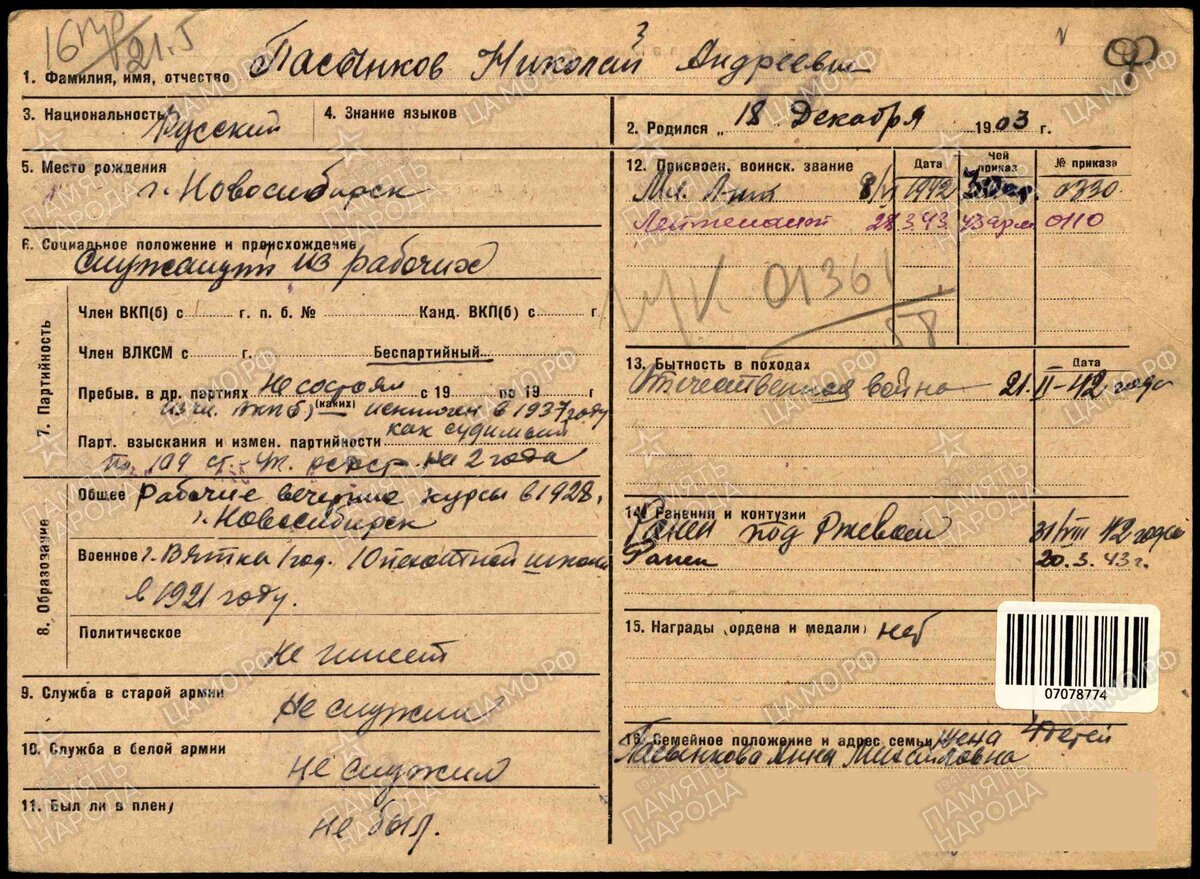 16 пр/21.5
1. Фамилия, имя, отчество Пасынков Николай Андреевич
3. Национальность Русский
4. Знание языков
2. Родился „ 18 Декабря 1903 г.
5. Место рождения
г. Новосибирск
6. Социальное положение и происхождение
Служащий из рабочих
7. Партийность
Член ВКП(б) с г. п. б. № Канд. ВКП(б) с г.
Член ВЛКСМ с г. Беспартийный
Пребыв. в др. партиях Не состоял с 19 по 19 г
(каких)
из чл. ВКПб) исключен в 1937 году
Парт. взыскания и измен. партийности как судимый
По 109 ст. УК РСФСР на 2 года
8. Образование
Общее Рабочие вечерние курсы в 1928.
г. Новосибирск
Военное г. Вятка 1 год. Пехотной школы
в 1921 году.
Политическое
не имеет
9. Служба в старой армии
Не служил
10. Служба в белой армии
не служил
11. Был ли в плену
не был.
12. Присвоен. воинск. звание Дата Чей приказ № приказа
Мл. Л-нт 8/VI 1942 30 арм. 0330.
Лейтенант 28.3.43. 43 арм 0110
01361
58
13. Бытность в походах Дата
Отечественная война 21-II-42 года
14. Ранения и контузии
Ранен под Ржевом 31/VIII 42 года
Ранен 20.3.43 г.
15. Награды (ордена и медали) нет
16. Семейное положение и адрес семьи жена 4 детей
Пасынкова Анна Михайловна
07078774
ПАМЯТЬ НАРОДА
ЦАМО.РФ